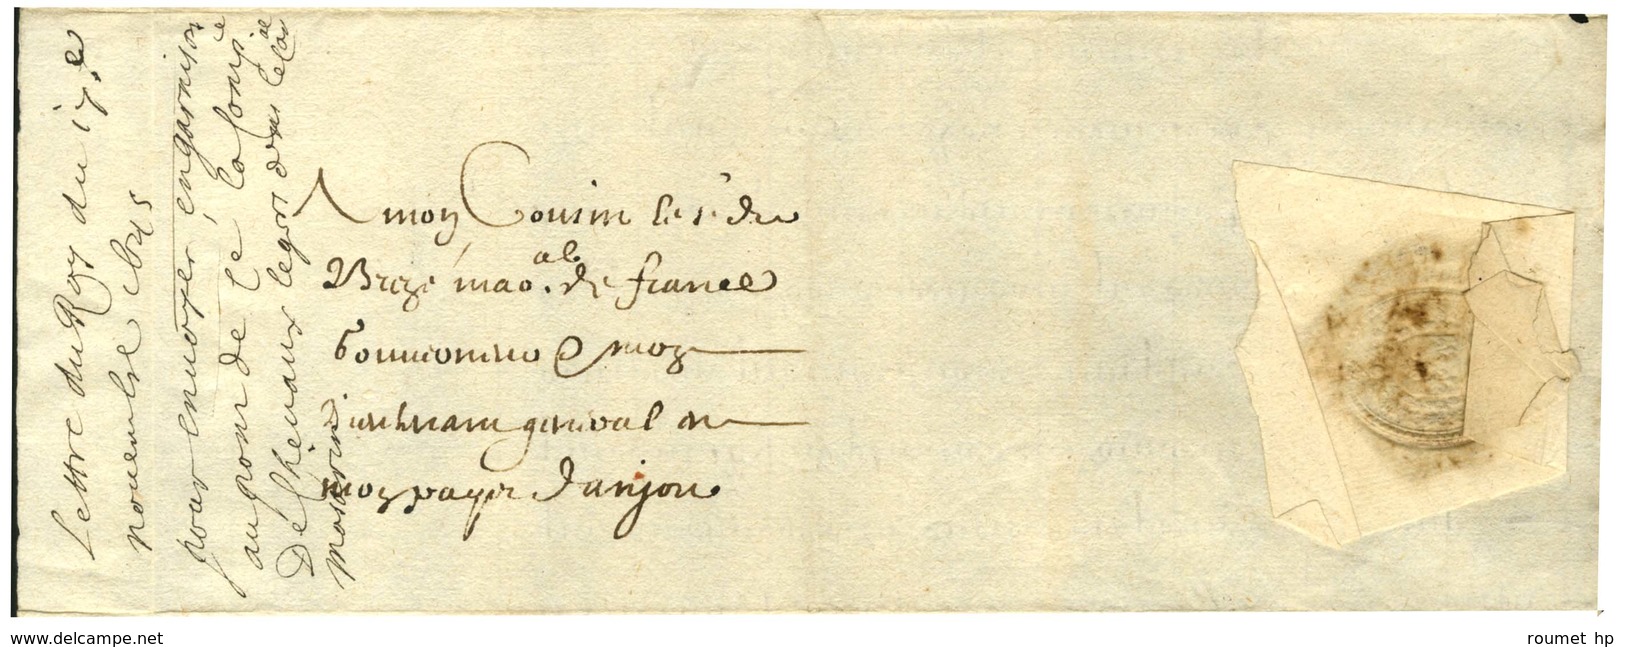 Lettre du Roy du 17.e
nouembre
pour enuoyer en garnison
au pont de Cé la Comp.e
De Cheuaux legers
A mon Cousin le s.r de
Brezé mao.al de france
Gouuerneur & mon
Lieutenant general en
mon pays d'anjou
www.delcampe.net
roumet hp